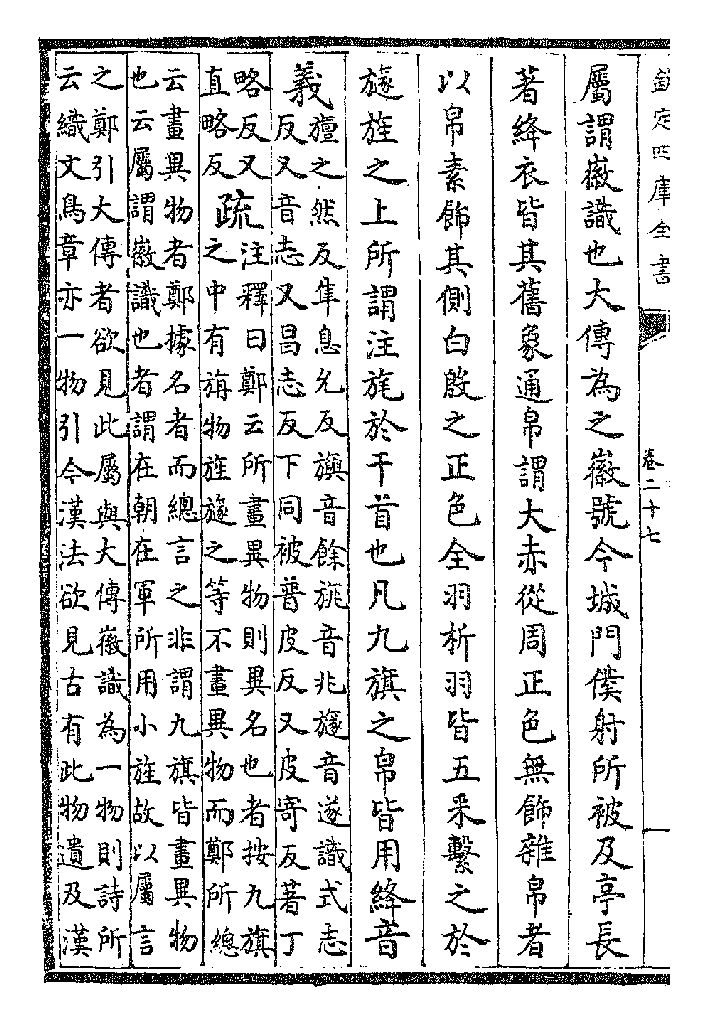 欽定四庫全書
卷二十七
屬謂徽識也大傳為之徽號今城門僕射所被及亭長
著絳衣皆其舊象通帛謂大赤從周正色無飾雜帛者
以帛素飾其側白殷之正色全羽析羽皆五采繫之於
旞旌之上所謂注旄於干首也凡九旗之帛皆用絳音
義旜之然反隼息允反旟音餘旐音兆旞音遂識式志
反又音志又昌志反下同被普皮反又皮寄反著丁
略反又
直略反疏注釋曰鄭云所畫異物則異名也者按九旗
之中有旃物旌旞之等不畫異物而鄭所總
云畫異物者鄭據名者而總言之非謂九旗皆畫異物
也云屬謂徽識也者謂在朝在軍所用小旌故以屬言
之鄭引大傳者欲見此屬與大傳徽識為一物則詩所
云織文鳥章亦一物引今漢法欲見古有此物遺及漢